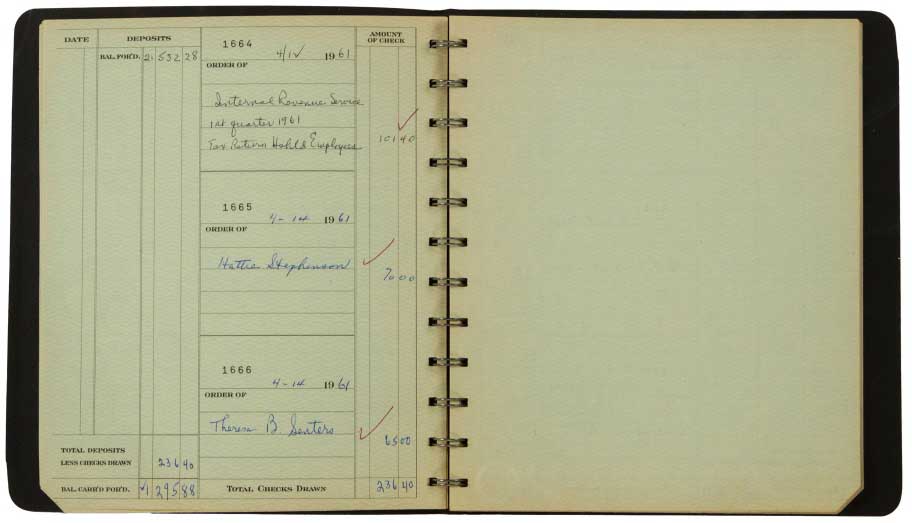 DATE DEPOSITS AMOUNT OF CHECK
BAL. FOR'D. 21 532 28
1664
4/12 1961
ORDER OF
Internal Revenue Service
1st quarter 1961
Tax Return Employees 101 40
1665
4-14 1961
ORDER OF
Hattie Stephenson 70 00
1666
4-14 1961
ORDER OF
Theresa B. Senters 65 00
TOTAL DEPOSITS
LESS CHECKS DRAWN 236 40
BAL. CAR'D FOR'D. 21 295 88 TOTAL CHECKS DRAWN 236 40